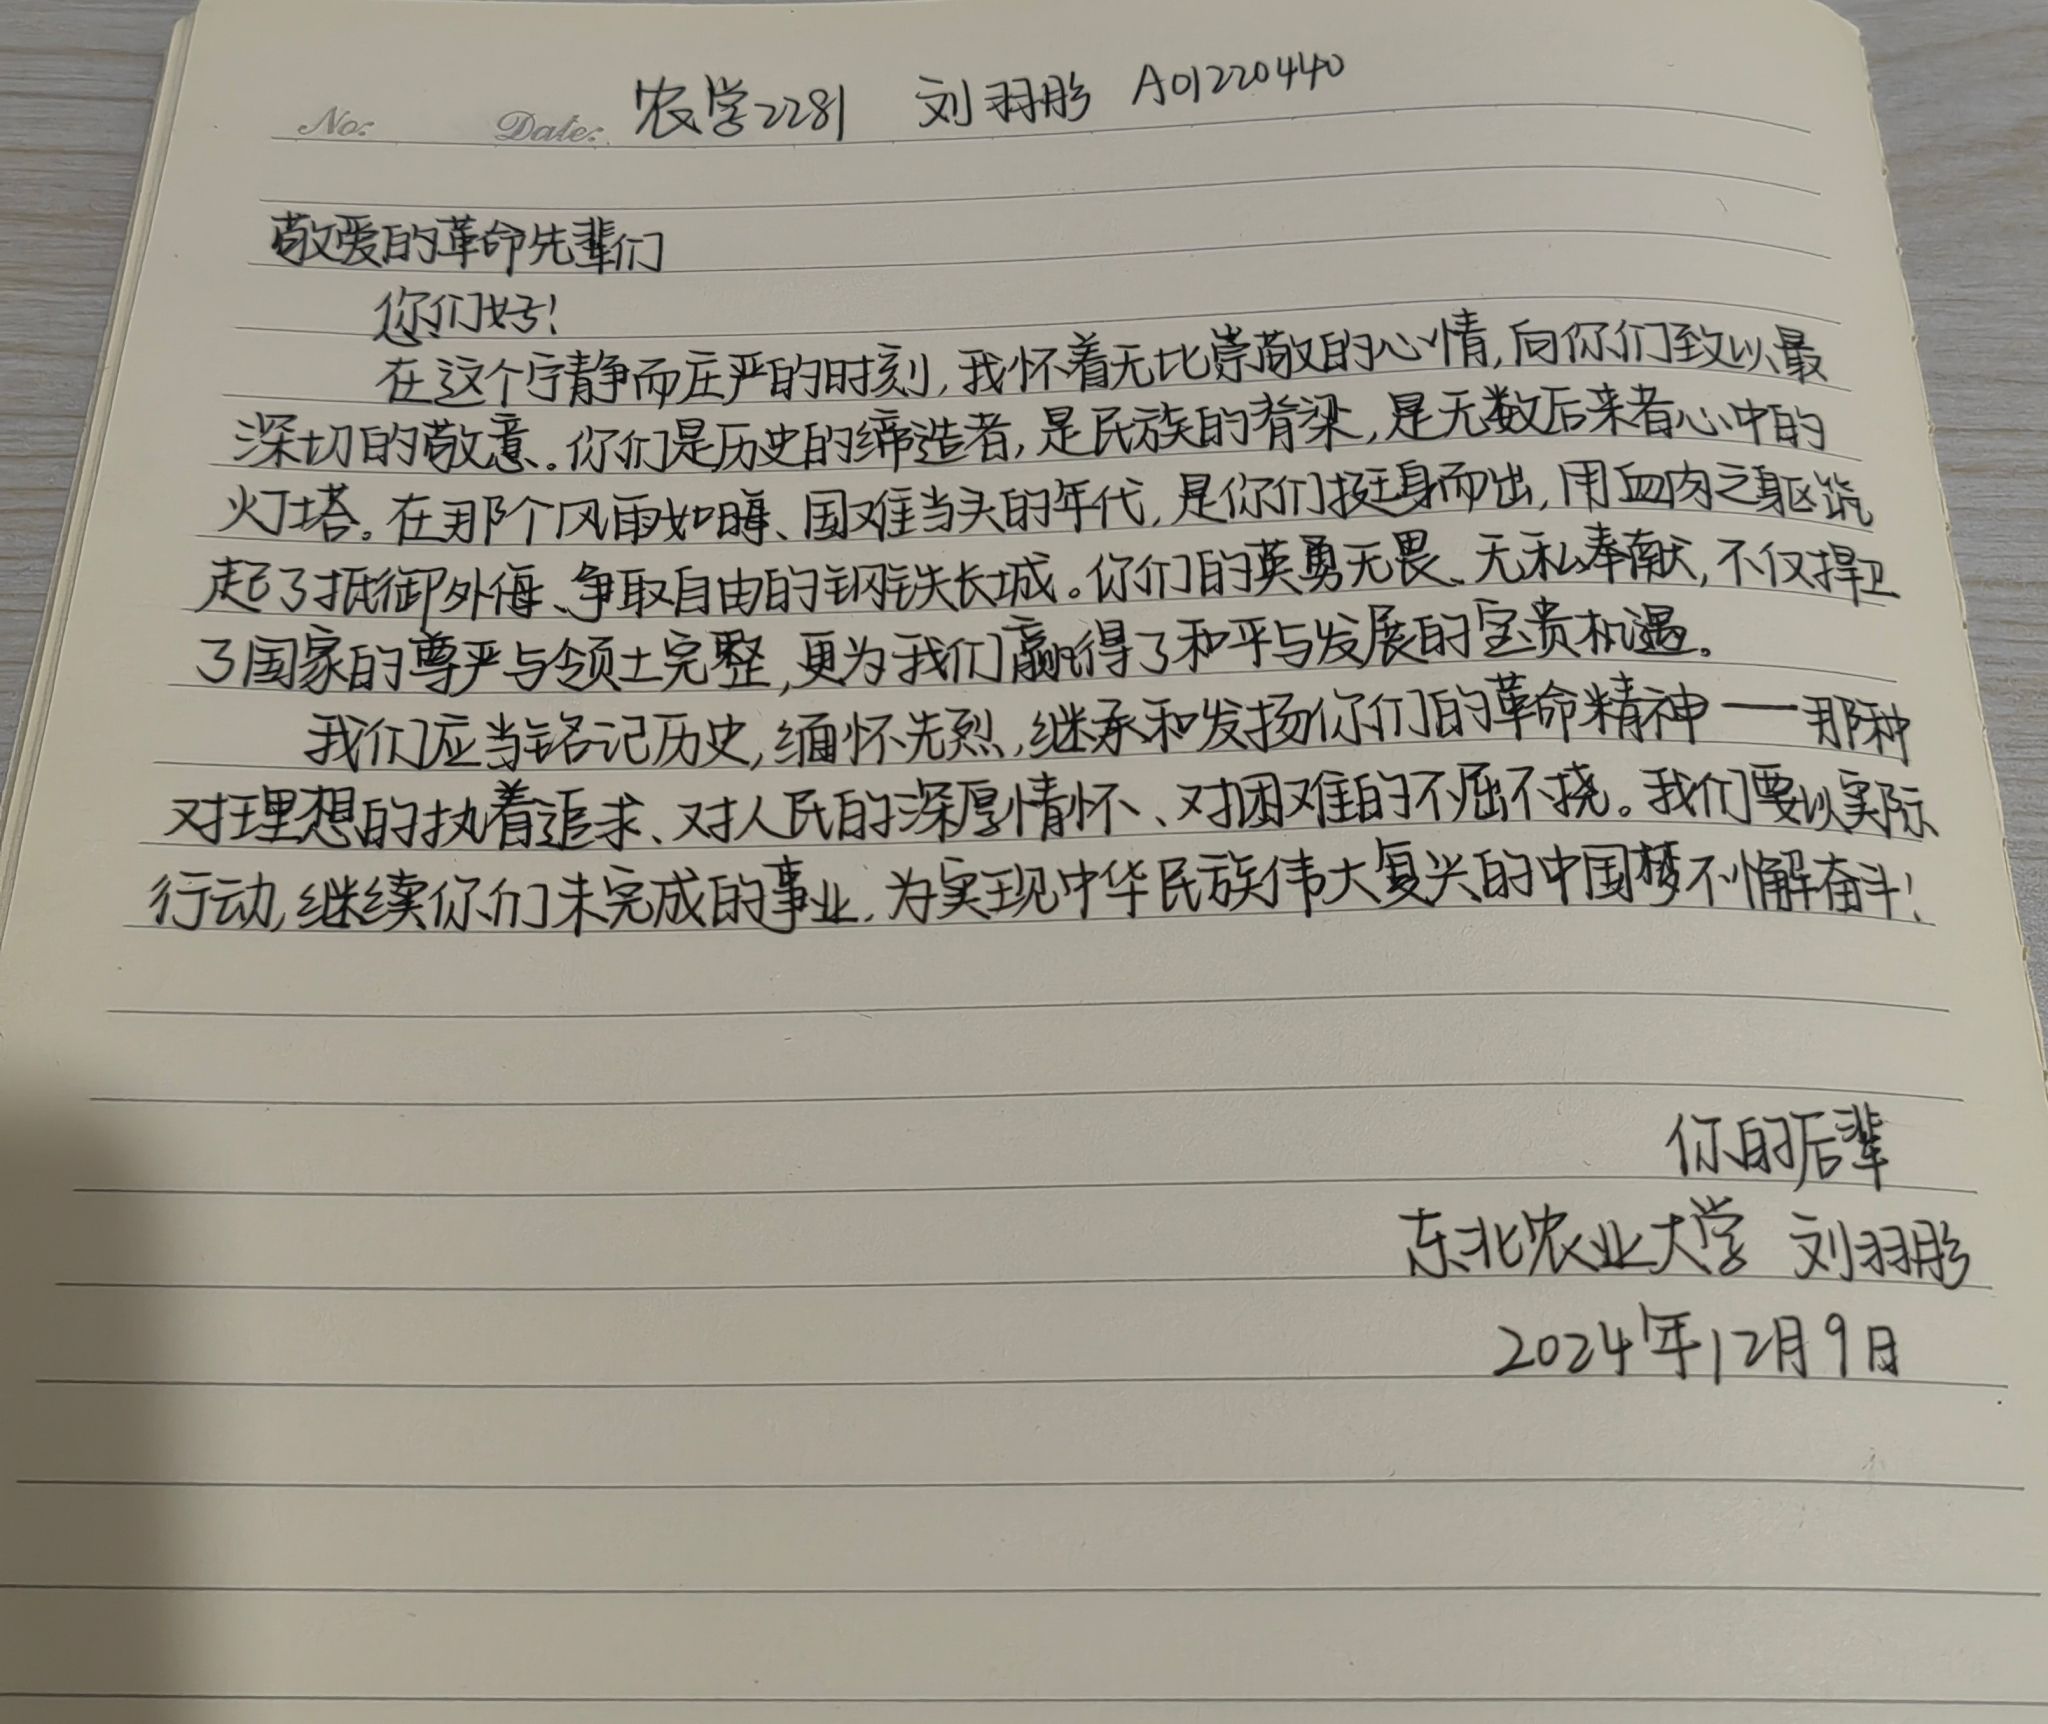 No: Date: 农学2281 刘羽彤 A01220440
敬爱的革命先辈们
你们好!
在这个宁静而庄严的时刻,我怀着无比崇敬的心情,向你们致以最
深切的敬意。你们是历史的缔造者,是民族的脊梁,是无数后来者心中的
灯塔。在那个风雨如晦、国难当头的年代,是你们挺身而出,用血肉之躯筑
起了抵御外侮、争取自由的钢铁长城。你们的英勇无畏、无私奉献,不仅捍卫
了国家的尊严与领土完整,更为我们赢得了和平与发展的宝贵机遇。
我们应当铭记历史,缅怀先烈,继承和发扬你们的革命精神——那种
对理想的执着追求、对人民的深厚情怀、对困难的不屈不挠。我们要以实际
行动,继续你们未完成的事业,为实现中华民族伟大复兴的中国梦不懈奋斗!
你的后辈
东北农业大学 刘羽彤
2024年12月9日